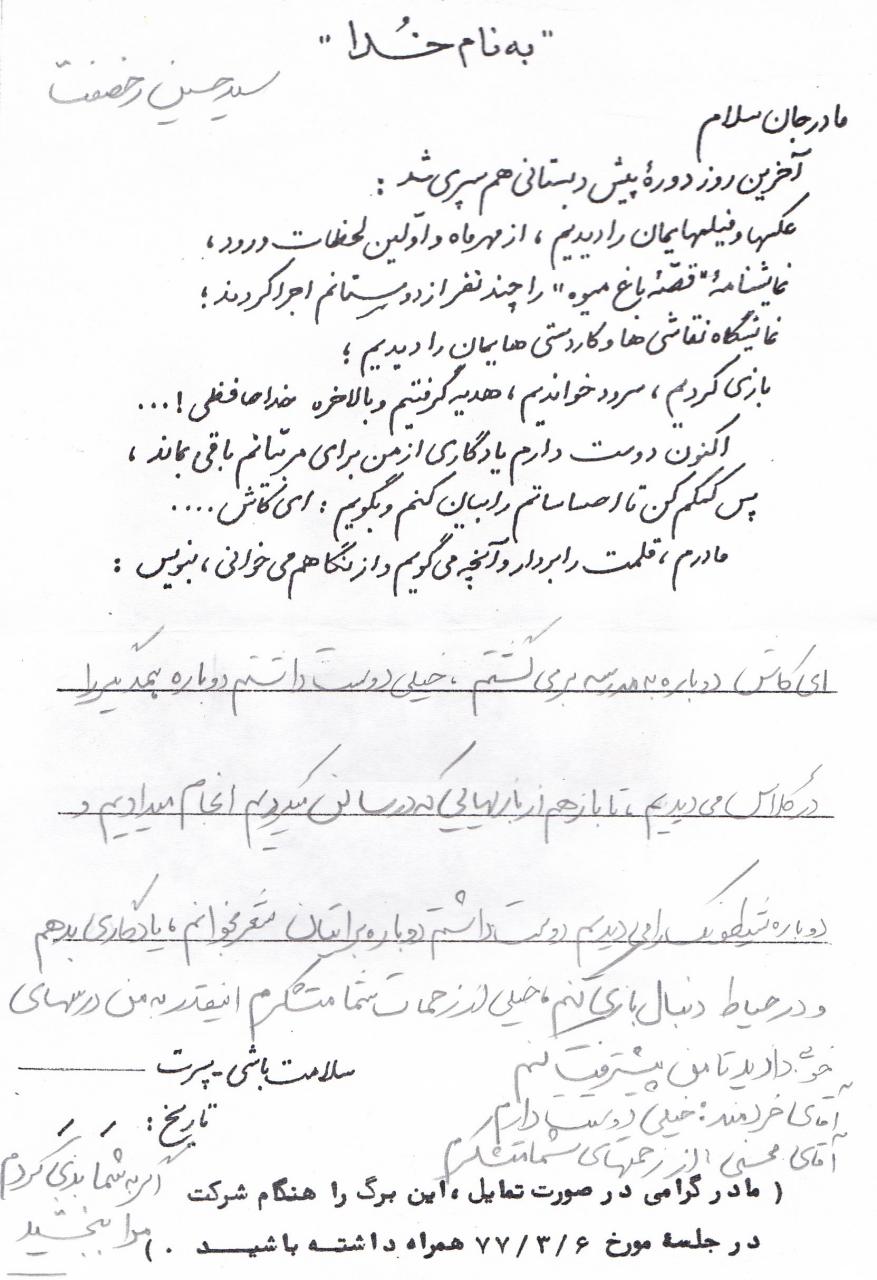 "به نام خُدا"
سید حسین
مادرجان سلام
آخرین روز دورهٔ پیش دبستانی هم سپری شد :
عکسها و فیلمهایمان را دیدیم ، از مهرماه و اوّلین لحظات ورود ،
نمایشنامهٔ "قصّهٔ باغ میوه" را چند نفر از دوستانم اجرا کردند ؛
نمایشگاه نقاشی ها و کاردستی هایمان را دیدیم ؛
بازی کردیم ، سرود خواندیم ، هدیه گرفتیم و بالاخره خداحافظی ! ...
اکنون دوست دارم یادگاری از من برای مربّیانم باقی بماند ،
پس کمکم کن تا احساساتم را بیان کنم و بگویم : ای کاش ....
مادرم ، قلمت را بردار و آنچه می گویم و از نگاهم می خوانی ، بنویس :
ای کاش دوباره به مدرسه برمی گشتم ، خیلی دوست داشتم دوباره همدیگر را
در کلاس می دیدیم ، تا باز هم از بازیهایی که در سالن میکردیم انجام میدادیم و
دوباره را می دیدیم دوست داشتم دوباره برایتان شعر بخوانم ، یادگاری بدهم
و در حیاط دنبال بازی کنم ، خیلی از زحمات شما متشکرم اینقدر به من درسهای
خوبی دادید تا من پیشرفت کنم
سلامت باشی - پسرت
آقای خردمند : خیلی دوستت دارم
تاریخ : / /
آقای محسنی : از زحمتهای شما متشکرم
اگر به شما بدی کردم
مرا ببخشید
( مادر گرامی در صورت تمایل ، این برگ را هنگام شرکت
در جلسهٔ مورخ ۷۷/۳/۶ همراه داشته باشید . )